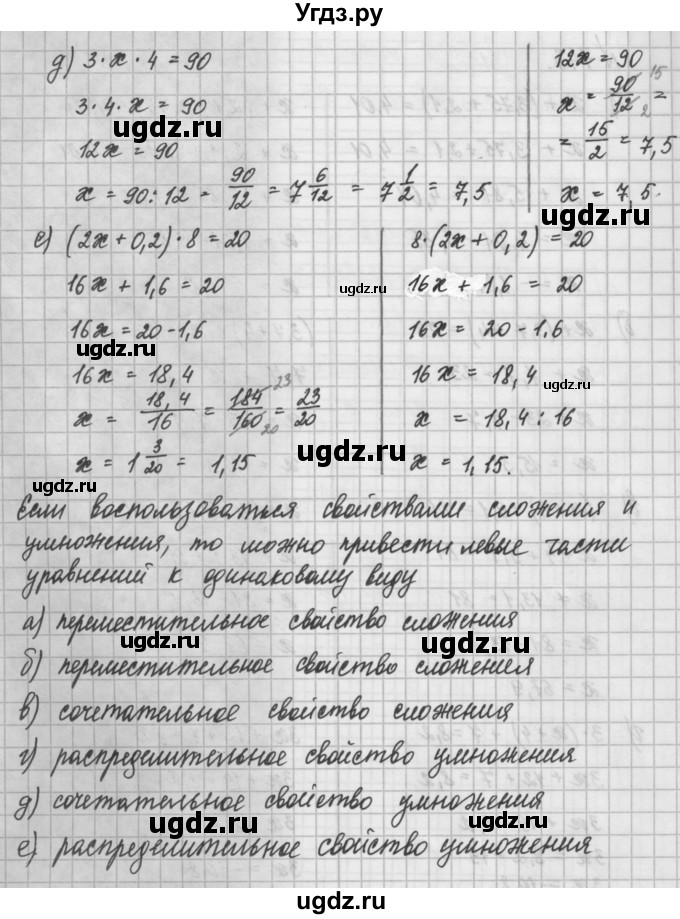 Угдз.ру
д) 3 · x · 4 = 90
3 · 4 · x = 90
12x = 90
x = 90 : 12 = 90/12 = 7 6/12 = 7 1/2 = 7,5
12x = 90
x = 90/12 = 15 2
= 15/2 = 7,5
x = 7,5.
е) (2x + 0,2) · 8 = 20
16x + 1,6 = 20
16x = 20 - 1,6
16x = 18,4
x = 18,4/16 = 184/160 = 23/20 23 20
x = 1 3/20 = 1,15
8 · (2x + 0,2) = 20
16x + 1,6 = 20
16x = 20 - 1.6
16x = 18,4
x = 18,4 : 16
x = 1,15.
Если воспользоваться свойствами сложения и
умножения, то можно привести левые части
уравнений к одинаковому виду
а) переместительное свойство сложения
б) переместительное свойство сложения
в) сочетательное свойство сложения
г) распределительное свойство умножения
д) сочетательное свойство умножения
е) распределительное свойство умножения
ugdz.ru
ugdz.ru
ugdz.ru
ugdz.ru
ugdz.ru
ugdz.ru
ugdz.ru
ugdz.ru
ugdz.ru
ugdz.ru
ugdz.ru
ugdz.ru
ugdz.ru
ugdz.ru